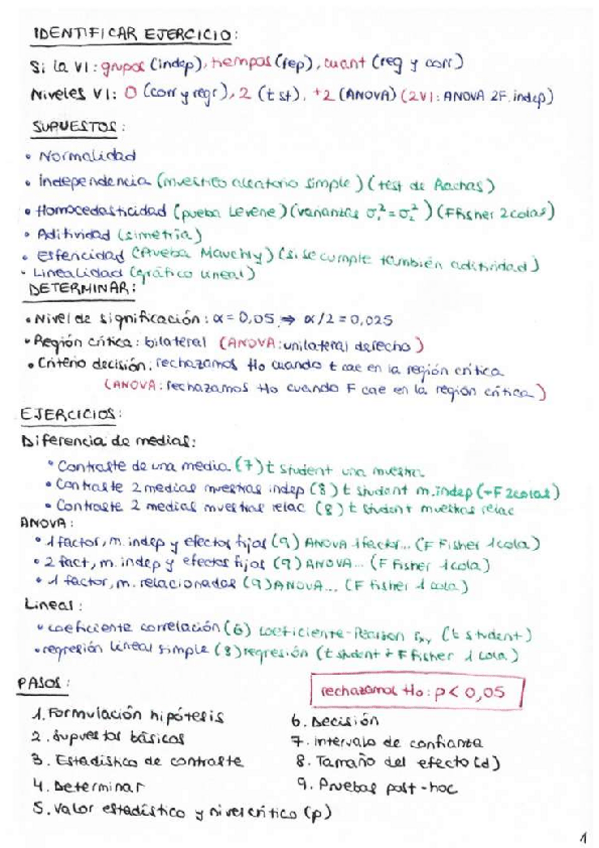 IDENTIFICAR EJERCICIO:
Si la VI: grupos (indep), tiempos (rep), cuant (reg y corr)
Niveles VI: 0 (corr y regr), 2 (t st), +2 (ANOVA) (2VI: ANOVA 2F. indep)
SUPUESTOS:
• Normalidad
• Independencia (muestreo aleatorio simple) (test de Rachas)
• Homocedasticidad (pueba Levene) (varianzas σ₁² = σ₂²) (F Fisher 2 colas)
• Aditividad (simetría)
• Esfericidad (Prueba Mauchly) (si se cumple también aditividad)
• Linealidad (gráfico lineal)
DETERMINAR:
• Nivel de significación: α = 0,05 ⇒ α/2 = 0,025
• Región crítica: bilateral (ANOVA: unilateral derecho)
• Criterio decisión: rechazamos Ho cuando t cae en la región crítica
(ANOVA: rechazamos Ho cuando F cae en la región crítica)
EJERCICIOS:
Diferencia de medias:
• Contraste de una media (7) t student una muestra
• Contraste 2 medias muestras indep (8) t student m. indep (+F 2colas)
• Contraste 2 medias muestras relac (8) t student muestras relac
ANOVA:
• 1 factor, m. indep y efectos fijos (9) ANOVA 1 factor... (F Fisher 1 cola)
• 2 fact, m. indep y efectos fijos (9) ANOVA... (F Fisher 1 cola)
• 1 factor, m. relacionadas (9) ANOVA... (F Fisher 1 cola)
Lineas:
• coeficiente correlación (6) coeficiente-Pearson rxy (t student)
• regresión lineal simple (8) regresión (t student + F fisher 1 cola)
PASOS:
rechazamos Ho: p < 0,05
1. Formulación hipótesis
2. Supuestos básicos
3. Estadístico de contraste
4. Determinar
5. Valor estadístico y nivel crítico (p)
6. Decisión
7. Intervalo de confianza
8. Tamaño del efecto (d)
9. Pruebas post-hoc
1